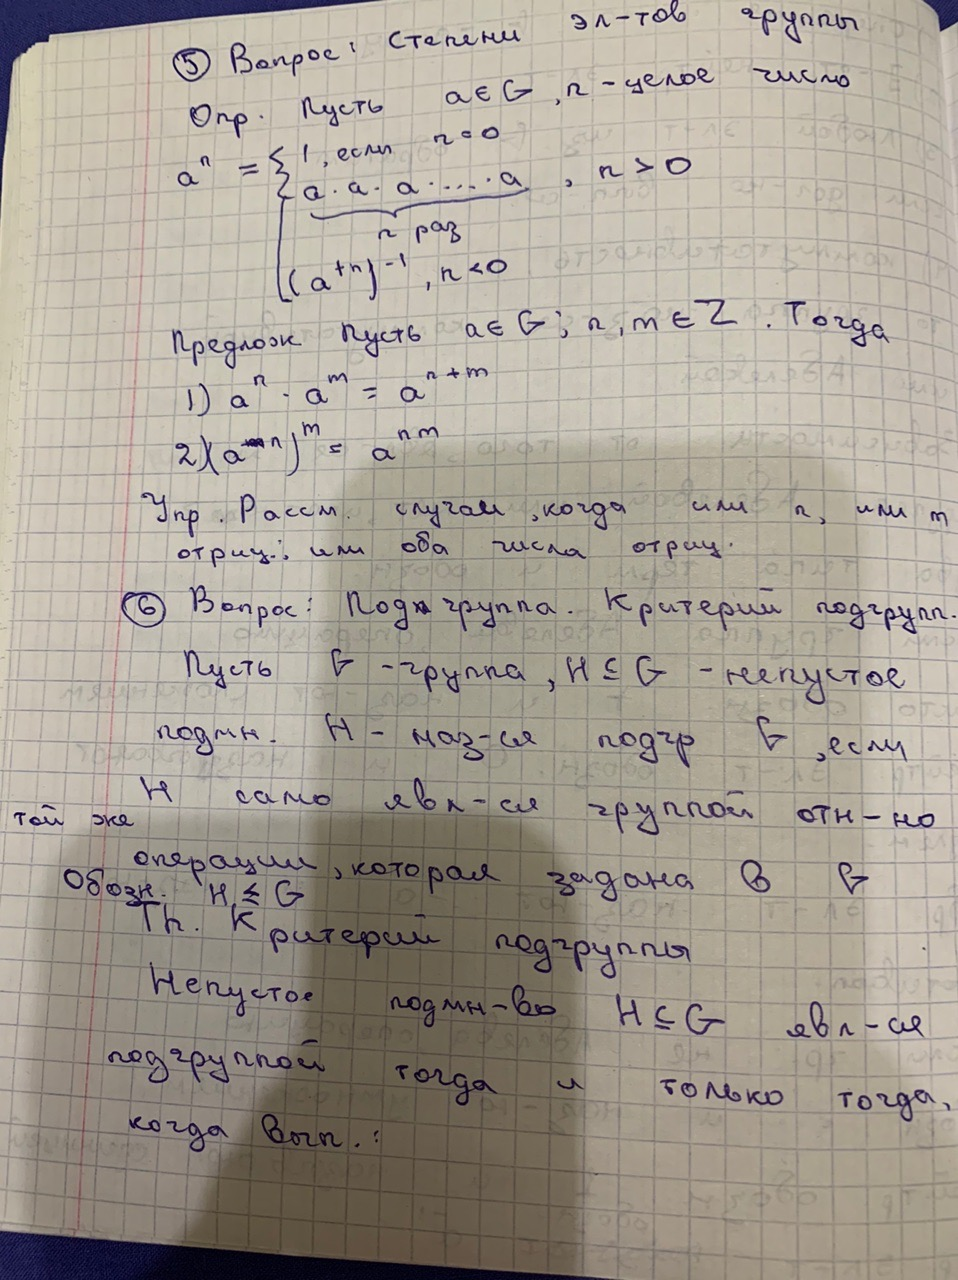 ⑤ Вопрос: Степени эл-тов группы
Опр. Пусть a∈G, n - целое число
aⁿ = { 1, если n=0
a·a·a·....·a , n>0
n раз
(a⁺ⁿ)⁻¹, n<0
Предлож Пусть a∈G; n, m∈Z. Тогда
1) aⁿ · aᵐ = aⁿ⁺ᵐ
2) (aⁿ)ᵐ = aⁿᵐ
Упр. Рассм. случаи, когда или n, или m
отриц.; или оба числа отриц.
⑥ Вопрос: Подгруппа. Критерий подгрупп.
Пусть G - группа, H⊆G - непустое
подмн. H - наз-ся подгр G, если
H само явл-ся группой отн-но
той же
операции, которая задана в G
Обозн. H≤G
Th. Критерий подгруппы
Непустое подмн-во H⊆G явл-ся
подгруппой тогда и только тогда,
когда вып.: